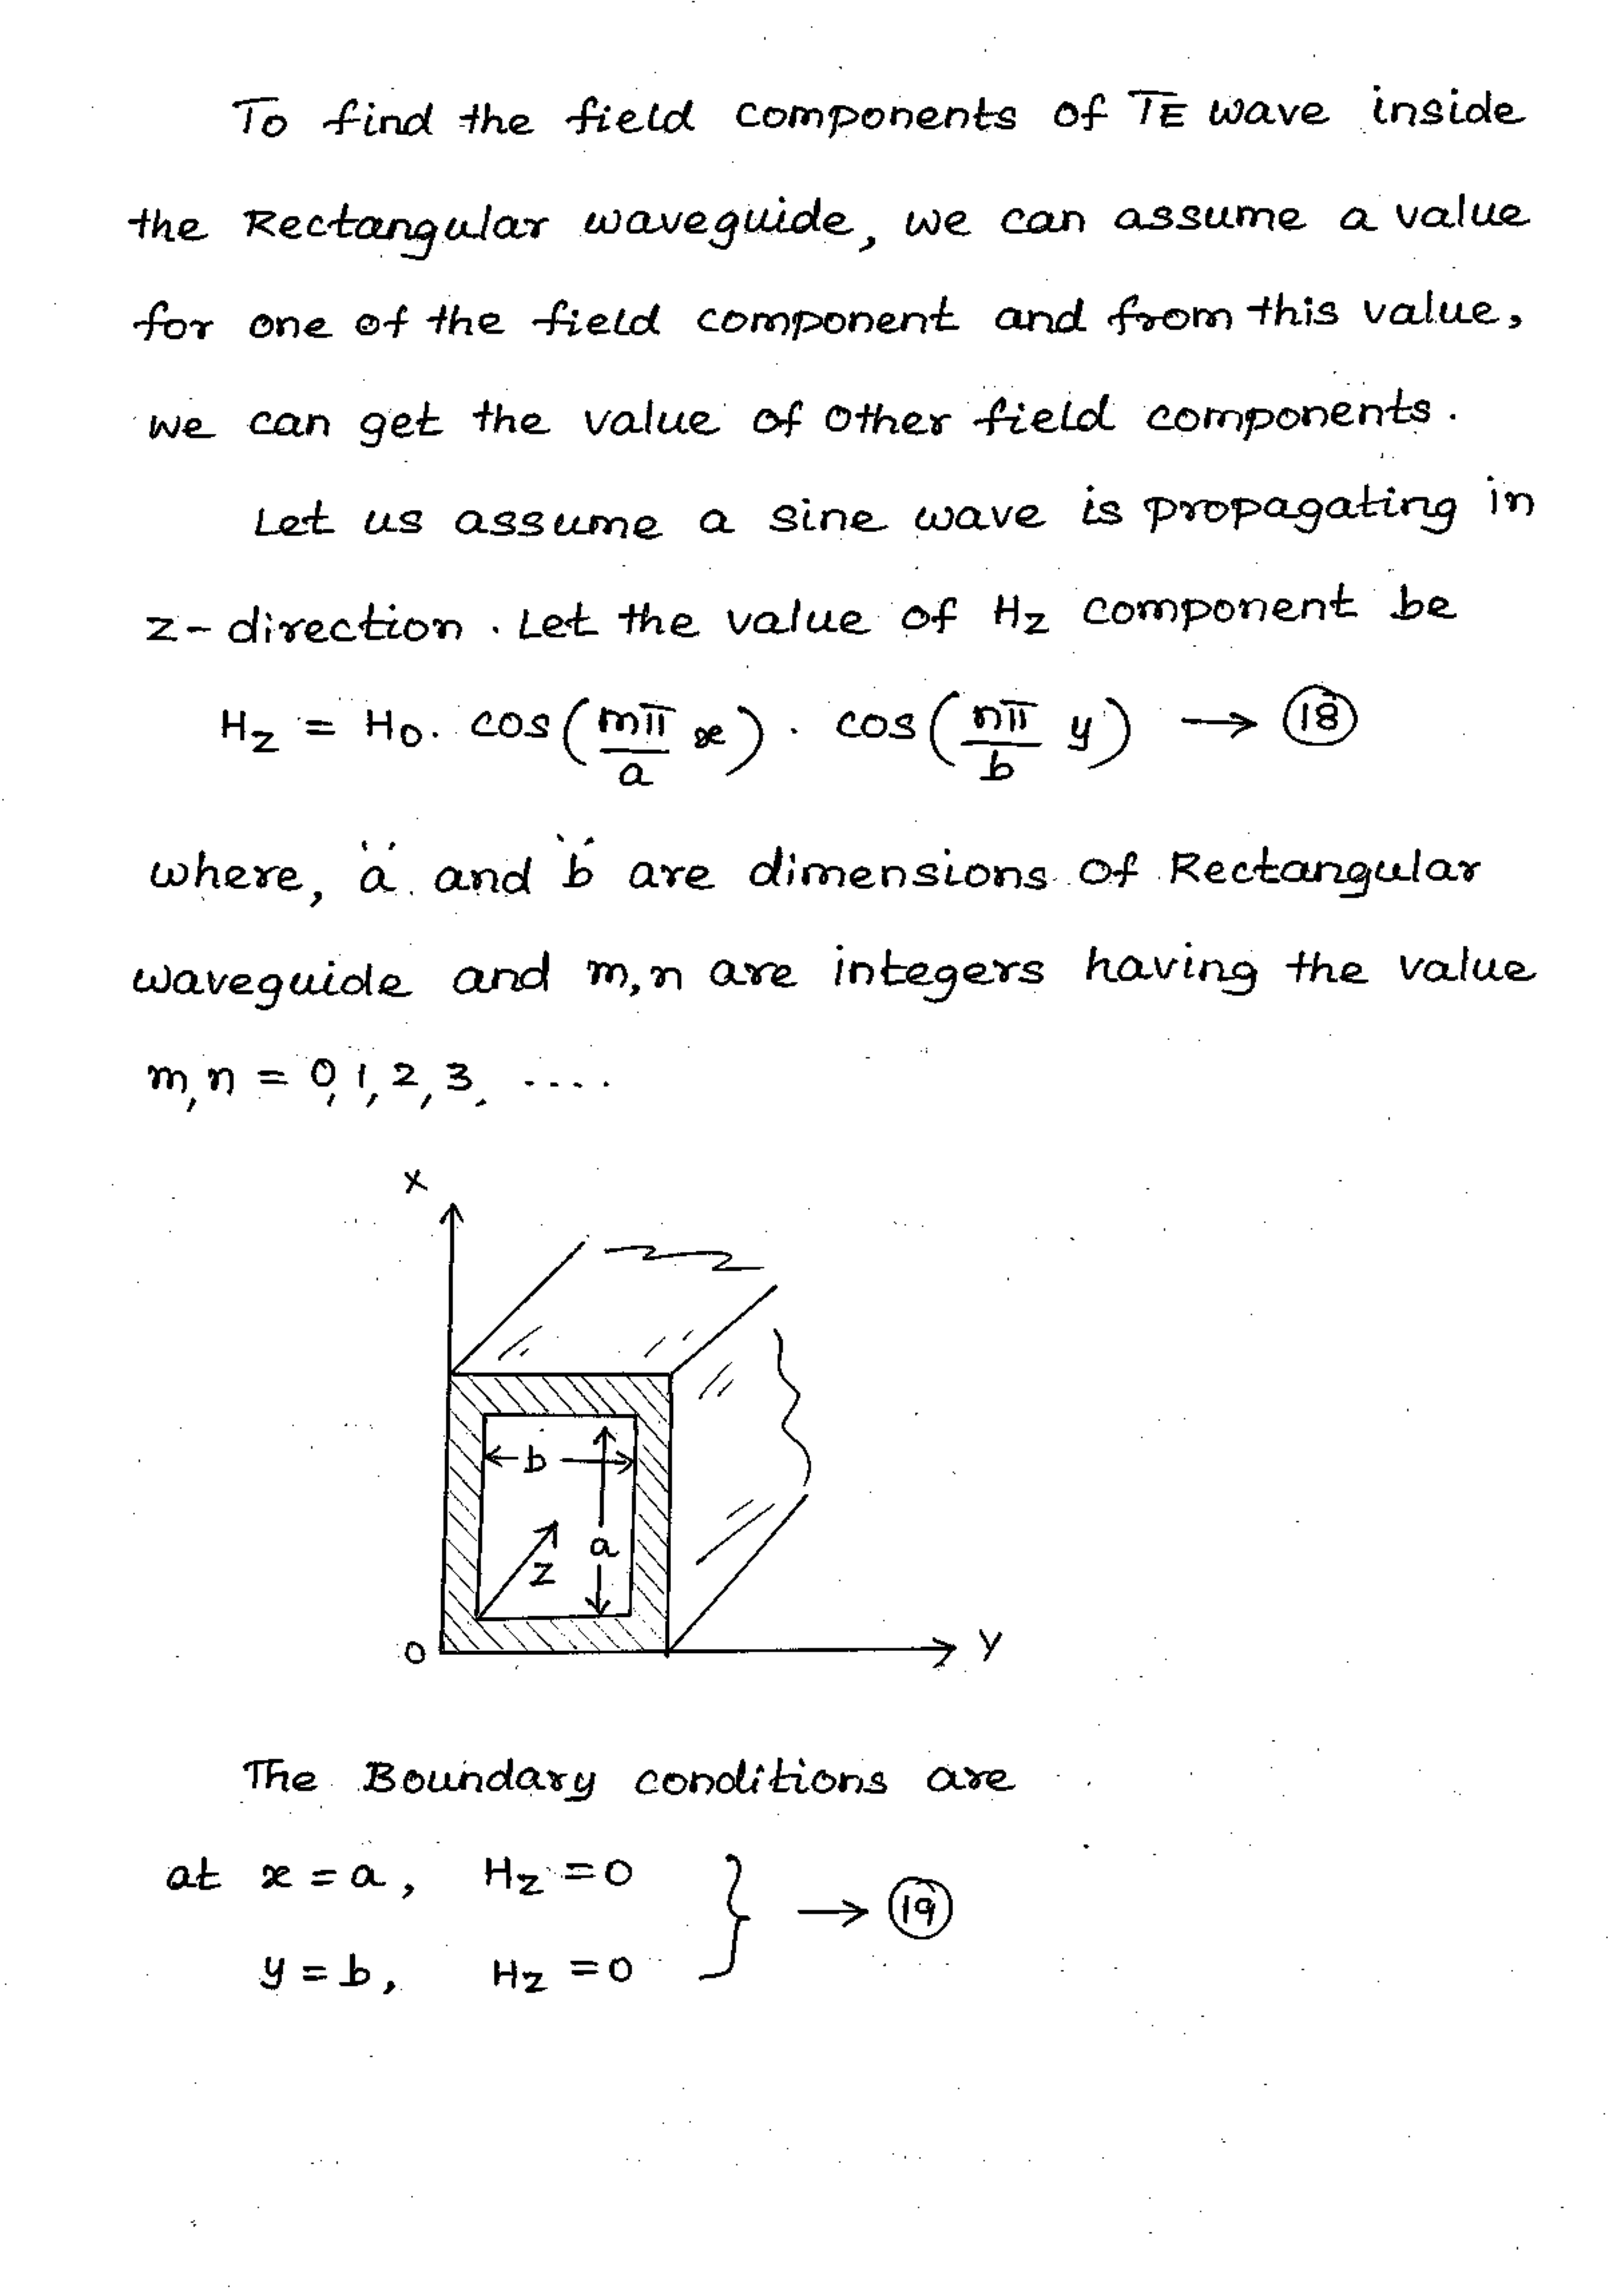 To find the field components of TE wave inside
the Rectangular waveguide, we can assume a value
for one of the field component and from this value,
we can get the value of other field components.
Let us assume a sine wave is propagating in
z-direction. Let the value of Hz component be
Hz = H0. cos(mπ/a x) . cos(nπ/b y) → (18)
where, "a" and "b" are dimensions of Rectangular
waveguide and m,n are integers having the value
m,n = 0,1,2,3, ....
X
b
a
Z
0
Y
The Boundary conditions are
at x = a, Hz = 0
y = b, Hz = 0 } → (19)